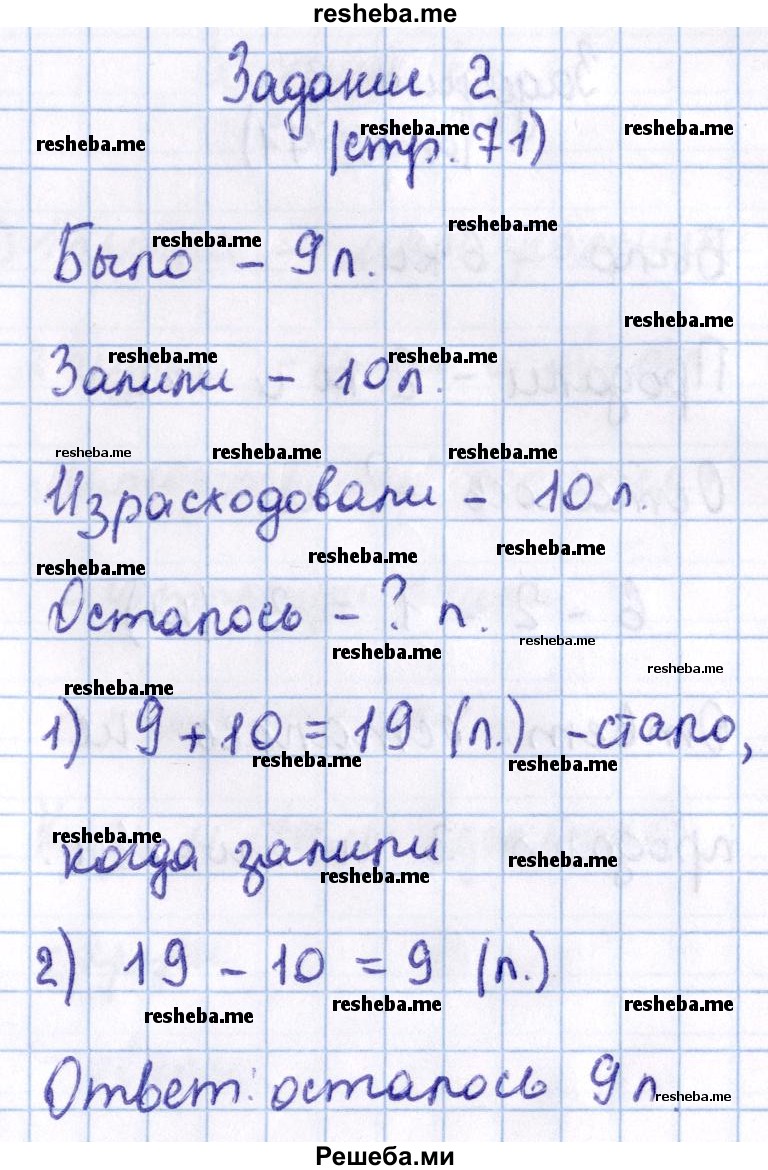 resheba.me
Задание 2
resheba.me
resheba.me
resheba.me
(стр. 71)
resheba.me
resheba.me
Было - 9 л.
resheba.me
resheba.me
resheba.me
Залили - 10 л.
resheba.me
resheba.me
resheba.me
Израсходовали - 10 л.
resheba.me
resheba.me
resheba.me
Осталось - ? л.
resheba.me
resheba.me
resheba.me
resheba.me
1) 9 + 10 = 19 (л.) - стало,
resheba.me
resheba.me
resheba.me
когда залили
resheba.me
resheba.me
2) 19 - 10 = 9 (л.)
resheba.me
resheba.me
resheba.me
Ответ: осталось 9 л.
resheba.me
Решеба.ми